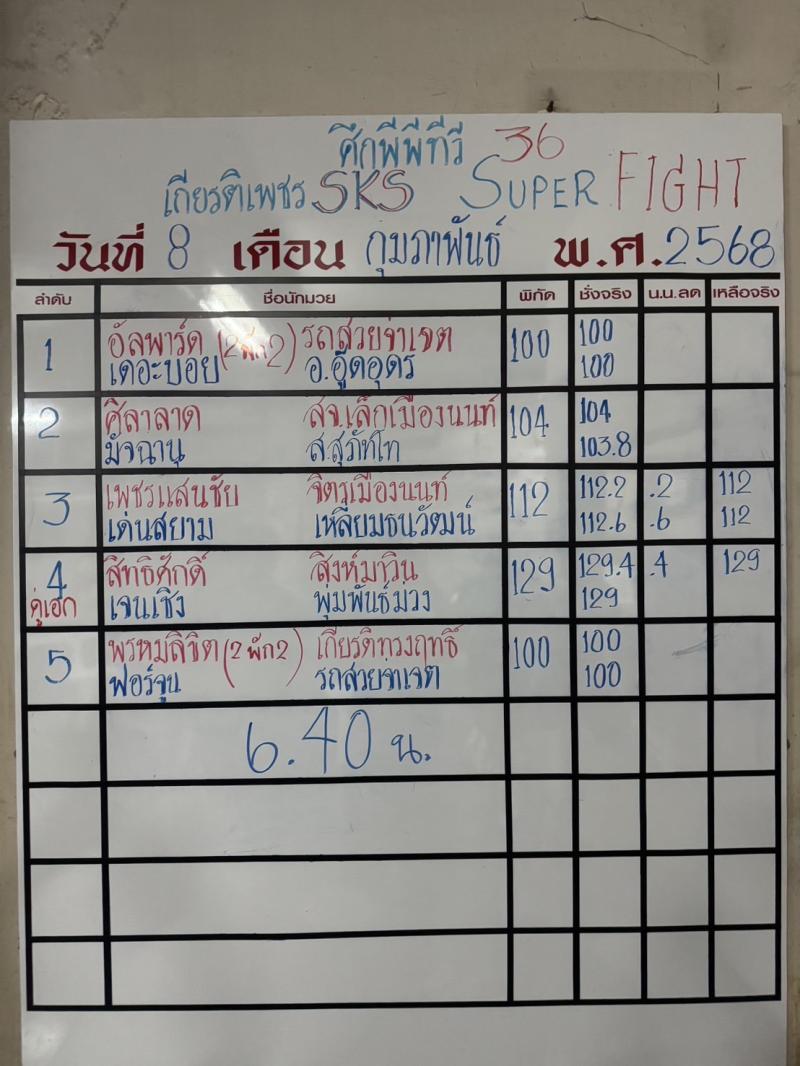 ศึกพีพีทีวี 36
เกียรติเพชร SKS SUPER FIGHT
วันที่ 8 เดือน กุมภาพันธ์ พ.ศ. 2568
ลำดับ ชื่อนักมวย พิกัด ชั่งจริง น.น.ลด เหลือจริง
1 อัลพาร์ด (2พัก2) รถสวยจ่าเจต 100 100
เดอะบอย อ.อู๊ดอุดร 100
2 ศิลาลาด สจ.เล็กเมืองนนท์ 104 104
มัจฉานุ ส.สุภัทโท 103.8
3 เพชรแสนชัย จิตรเมืองนนท์ 112 112.2 .2 112
เด่นสยาม เหลี่ยมธนวัฒน์ 112.6 .6 112
4 สิทธิศักดิ์ สิงห์มาวิน 129 129.4 .4 129
คู่เอก เจนเชิง พุ่มพันธ์ม่วง 129
5 พรหมลิขิต (2 พัก2) เกียรติทรงฤทธิ์ 100 100
ฟอร์จูน รถสวยจ่าเจต 100
6.40 น.